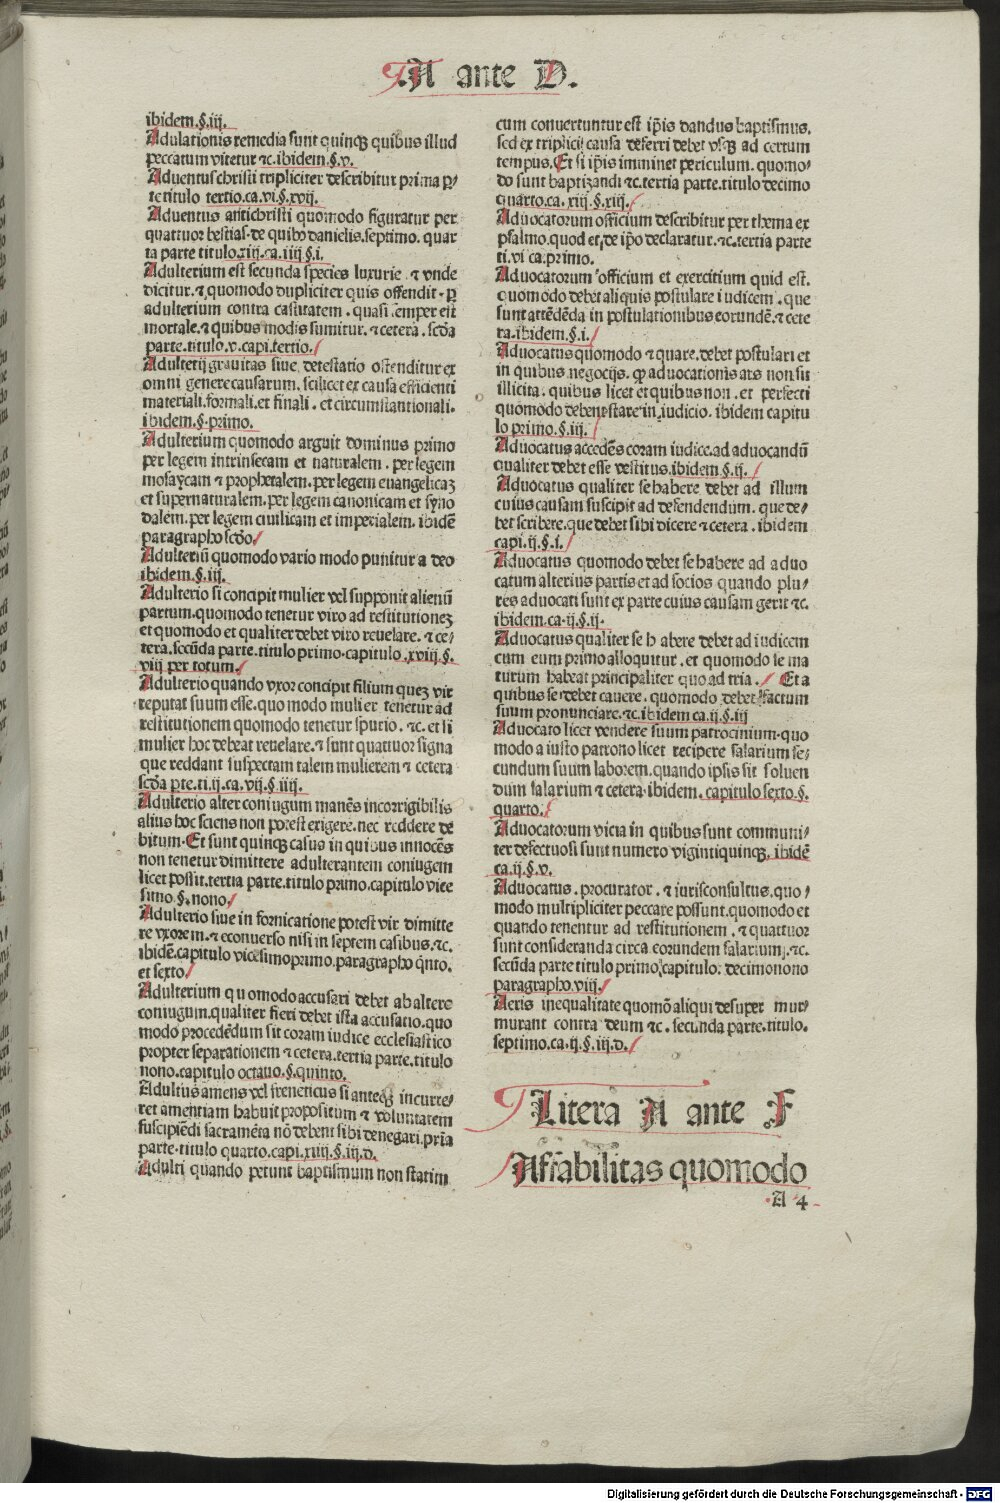 A ante D.
ibidem.§.iij.
Adulationis remedia sunt quinqꝫ quibus illud
peccatum vitetur ⁊c.ibidem.§.v.
Aduentus christi tripliciter describitur prima p̱-
te titulo tertio.ca.vi.§.xvij.
Aduentus antichristi quomodo figuratur per
quattuor bestias.de quibꝰ danielis.septimo. quar
ta parte titulo.xiij.ca.iiij.§.i.
Adulterium est secunda species luxurie .⁊ vnde
dicitur.⁊ quomodo dupliciter quis offendit.p̱
adulterium contra castitatem . quasi semper est
mortale.⁊ quibus modis sumitur.⁊ cetera . scd̄a
parte.titulo.v.capi.tertio.
Adulterij grauitas siue detestatio ostenditur ex
omni genere causarum. scilicet ex causa efficienti
materiali.formali.et finali . et circumstantionali.
ibidem.§.primo.
Adulterium quomodo arguit dominus primo
per legem intrinsecam et naturalem . per legem
mosaycam ⁊ prophetalem.per legem euangelicaꝫ
et supernaturalem.per legem canonicam et syno
dalem.per legem ciuilicam et imperialem. ibidē
paragrapho scd̄o
Adulteriū quomodo vario modo punitur a deo
ibidem.§.iij.
Adulterio si concipit mulier vel supponit alienū
partum.quomodo tenetur viro ad restitutioneꝫ
et quomodo et qualiter debet viro reuelare. ⁊ ce-
tera.secūda parte.titulo primo.capitulo .xviij.§.
viij per totum.
Adulterio quando vxor concipit filium queꝫ vir
reputat suum esse.quo modo mulier tenetur ad
restitutionem quomodo tenetur spurio . ⁊c. et si
mulier hoc debeat reuelare.⁊ sunt quattuor signa
que reddant suspectam talem mulierem ⁊ cetera
scd̄a p̱te.ti.ij.ca.vij.§.iiij.
Adulterio alter coniugum manēs incorrigibilis
alius hoc sciens non potest exigere.nec reddere de
bitum.Et sunt quinqꝫ casus in quibus innocēs
non tenetur dimittere adulterantem coniugem
licet possit.tertia parte.titulo primo.capitulo vice
simo.§.nono
Adulterio siue in fornicatione potest vir dimitte
re vxorem.⁊ econuerso nisi in septem casibus.⁊c.
ibidē.capitulo vicesimoprimo.paragrapho q̇nto.
et sexto
Adulterium quomodo accusari debet ab altero
coniugum.qualiter fieri debet ista accusatio.quo
modo procedēdum sit coram iudice ecclesiastico
propter separationem ⁊ cetera.tertia parte.titulo
nono.capitulo octauo.§.quinto.
Adultus amens vel freneticus si anteqꝫ incurre-
ret amentiam habuit propositum ⁊ voluntatem
suscipiēdi sacramēta nō debent sibi denegari.p̄ria
parte.titulo quarto.capi.xiij.§.iij.d.
Adulti quando petunt baptismum non statim
cum conuertuntur est ip̄is dandus baptismus.
sed ex triplici causa deferri debet vsqꝫ ad certum
tempus.Et si ip̄is imminet periculum. quomo-
do sunt baptizandi ⁊c.tertia parte.titulo decimo
quarto.ca. xiij.§.xiij.
Aduocatorum officium describitur per thema ex
psalmo.quod et de ip̄o declaratur.⁊c.tertia parte
ti.vi ca.primo.
Aduocatorum officium et exercitium quid est.
quomodo debet aliquis postulare iudicem . que
sunt attēdēda in postulationibus eorundē.⁊ cete
ra.ibidem.§.i.
Aduocatus quomodo ⁊ quare.debet postulari et
in quibus negocijs. ꝙ aduocationis ars non sit
illicita. quibus licet et quibus non . et perfecti
quomodo debent stare in iudicio . ibidem capitu
lo primo.§.iij.
Aduocatus accedēs coram iudice.ad aduocandū
qualiter debet esse vestitus.ibidem.§.ij.
Aduocatus qualiter se habere debet ad illum
cuius causam suscipit ad defendendum. que de-
bet scribere.que debet sibi dicere ⁊ cetera . ibidem
capi.ij.§.i.
Aduocatus quomodo debet se habere ad aduo
catum alterius partis et ad socios quando plu-
res aduocati sunt ex parte cuius causam gerit ⁊c.
ibidem.ca.ij.§.ij.
Aduocatus qualiter se habere debet ad iudicem
cum eum primo alloquitur . et quomodo se ma
turum habeat principaliter quo ad tria . Et a
quibus se debet cauere . quomodo debet factum
suum pronunciare.⁊c.ibidem ca.ij.§.iij
Aduocato licet vendere suum patrocinium.quo
modo a iusto patrono licet recipere salarium se-
cundum suum laborem.quando ipsis sit soluen
dum salarium ⁊ cetera.ibidem. capitulo sexto.§.
quarto.
Aduocatorum vicia in quibus sunt communi-
ter defectuosi sunt numero vigintiquinqꝫ. ibidē
ca.ij.§.v.
Aduocatus . procurator . ⁊ iurisconsultus.quo-
modo multipliciter peccare possunt.quomodo et
quando tenentur ad restitutionem . ⁊ quattuor
sunt consideranda circa eorundem salarium. ⁊c.
secūda parte titulo primo.capitulo. decimonono
paragrapho.viij.
Aeris inequalitate quomō aliqui desuper mur-
murant contra deum ⁊c . secunda parte.titulo.
septimo.ca.ij.§.iij.d.
Litera A ante F
Affabilitas quomodo
A 4
Digitalisierung gefördert durch die Deutsche Forschungsgemeinschaft - DFG